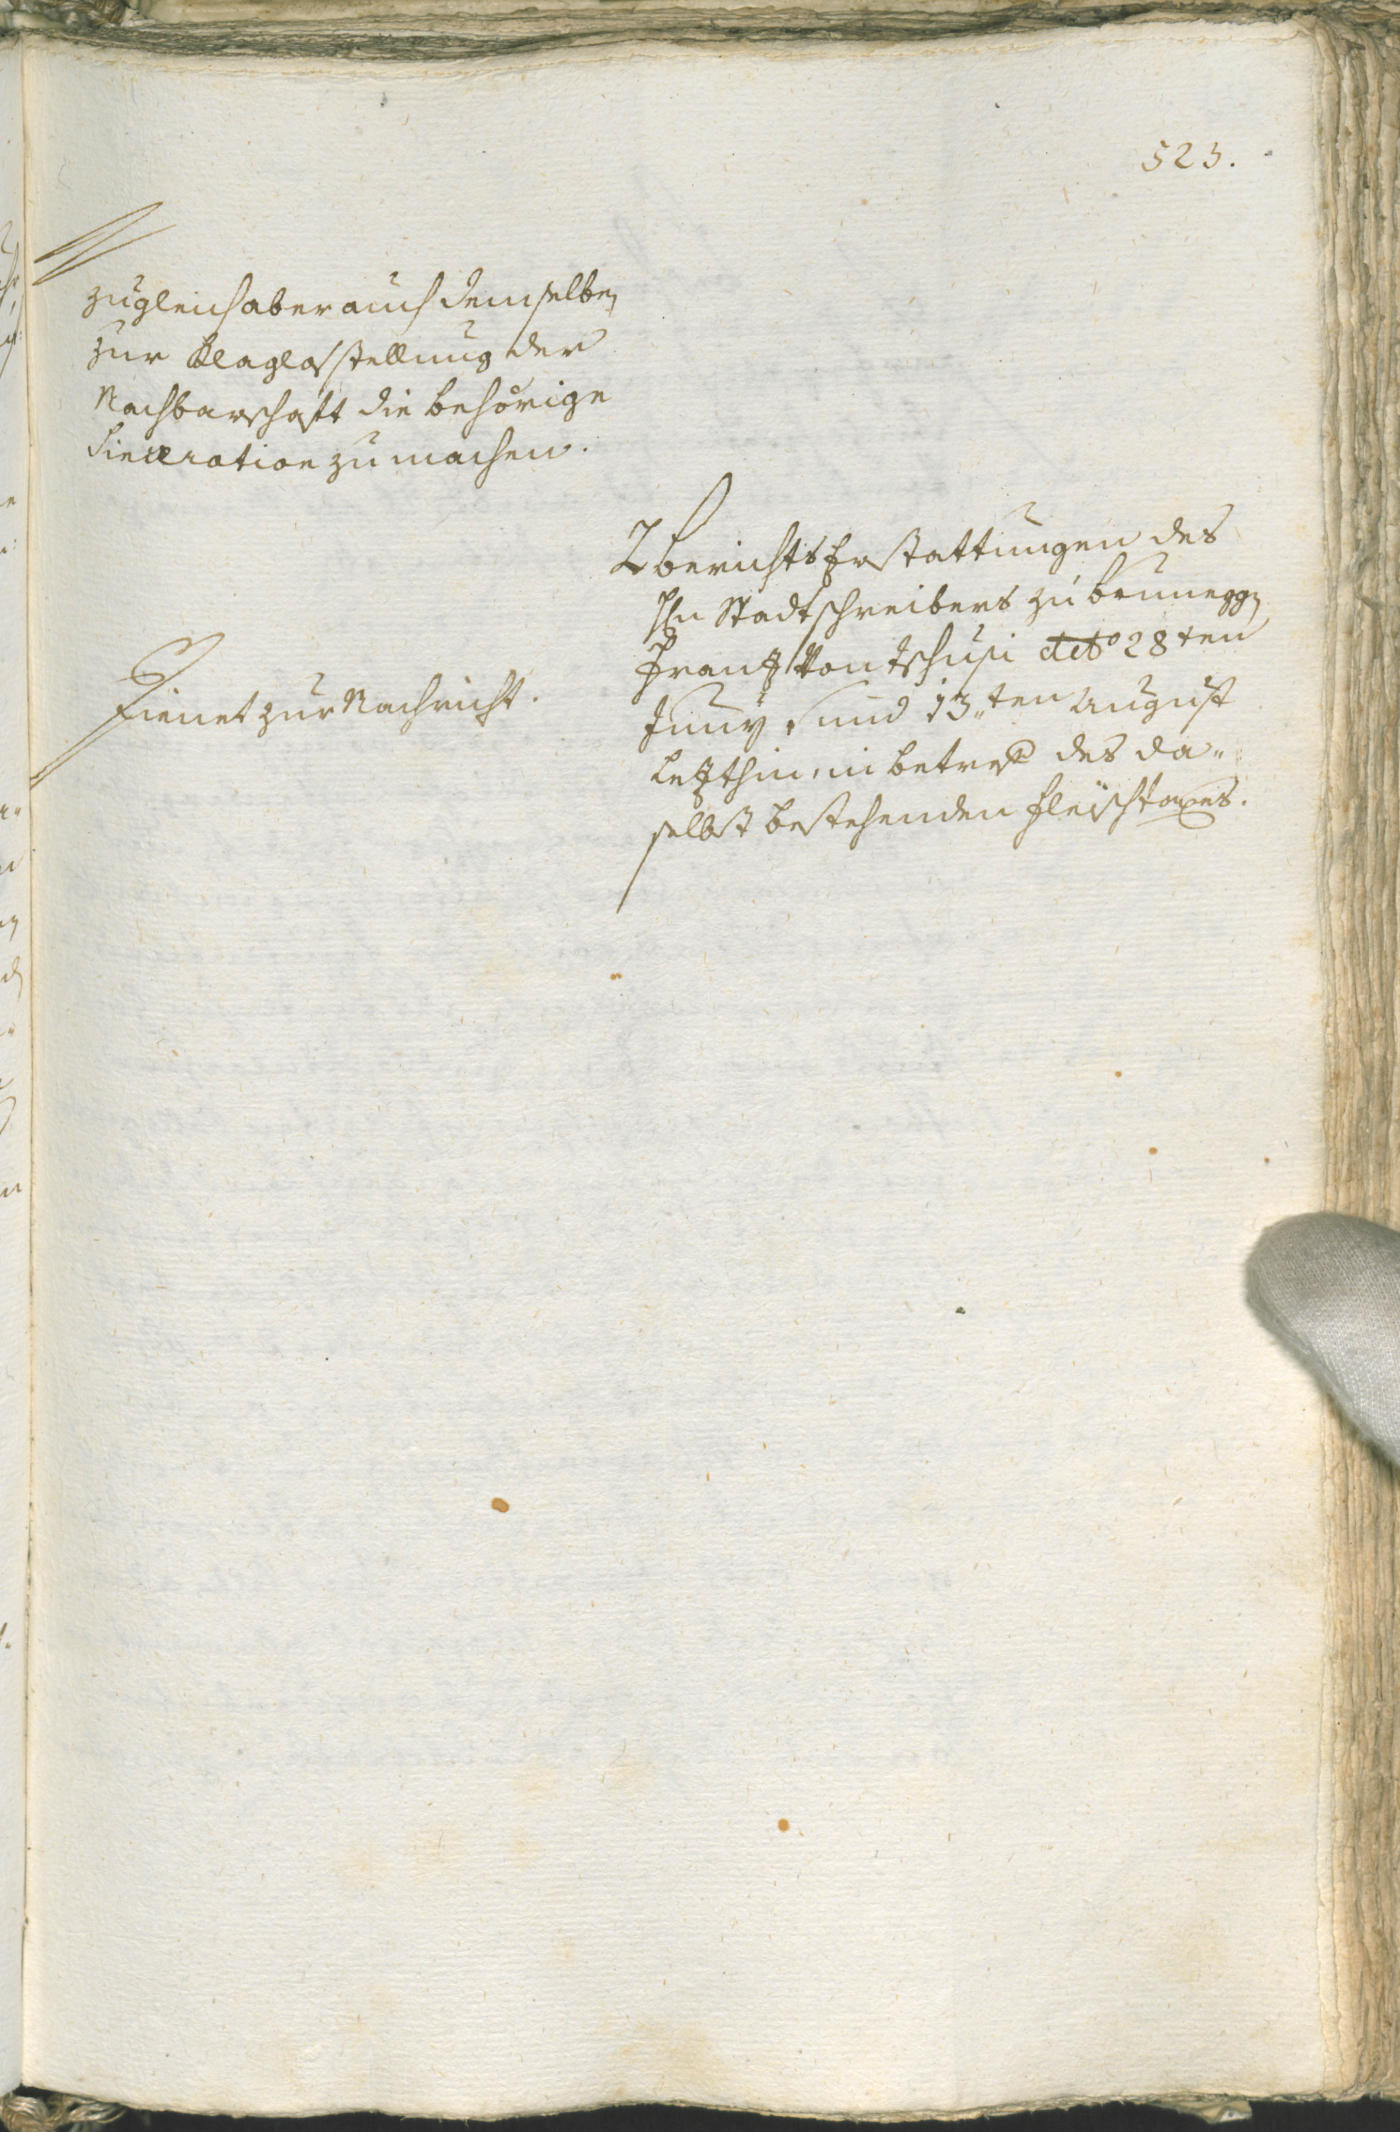 523.
zugleich aber auch demselben
zur Klaglosstellung der
Nachbarschaft die behörige
Sinceration zu machen.
2 berichts Erstattungen des
Hn Stadtschreibers zu brunegg
Frantz von Tschusi dto 28ten
Juny, und 13ten August
letzthin, in betref des da-
selbst bestehenden Fleischtaxes.
Dienet zur Nachricht.